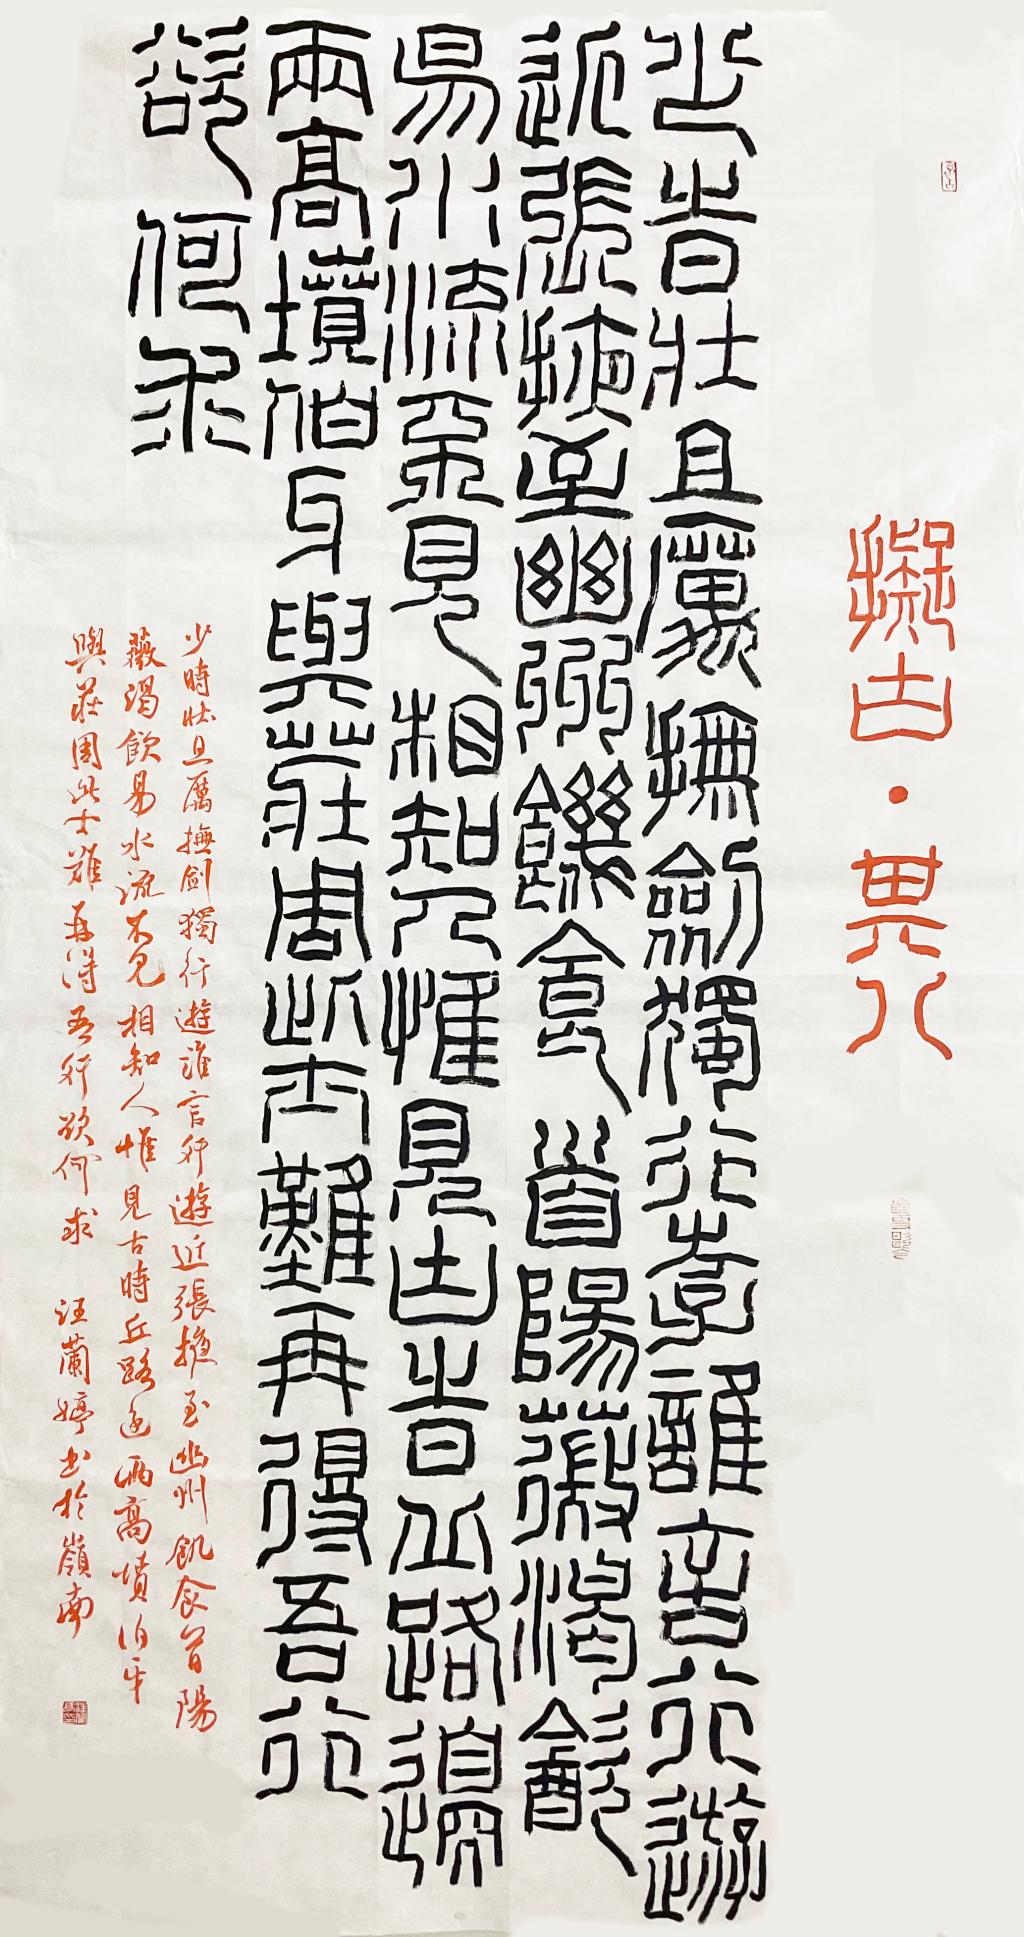 擬古·其八
少時壯且厲撫劍獨行遊誰言行遊
近張掖至幽州饑食首陽薇渴飲
易水流不見相知人惟見古時丘路邊
兩高墳伯牙與莊周此士難再得吾行
欲何求
少時壯且厲撫劍獨行遊誰言行遊近張掖至幽州飢食首陽
薇渴飲易水流不見相知人惟見古時丘路邊兩高墳伯牙
與莊周此士難再得吾行欲何求 汪蘭婷書於嶺南